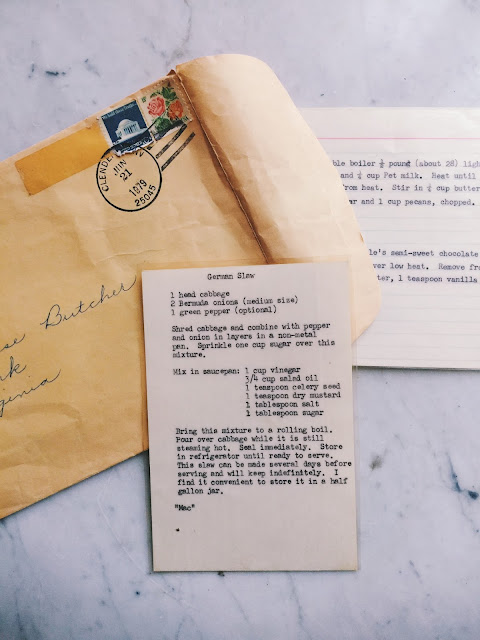 CLENDE
JUN
21
1979
25045
se Butcher
rk
ginia
ble boiler ½ pound (about 28) ligh
and ¼ cup Pet milk. Heat until
from heat. Stir in ¼ cup butter
ar and 1 cup pecans, chopped.
le's semi-sweet chocolate
ver low heat. Remove fro
ter, 1 teaspoon vanilla
German Slaw
1 head cabbage
2 Bermuda onions (medium size)
1 green pepper (optional)
Shred cabbage and combine with pepper
and onion in layers in a non-metal
pan. Sprinkle one cup sugar over this
mixture.
Mix in saucepan: 1 cup vinegar
3/4 cup salad oil
1 teaspoon celery seed
1 teaspoon dry mustard
1 tablespoon salt
1 tablespoon sugar
Bring this mixture to a rolling boil.
Pour over cabbage while it is still
steaming hot. Seal immediately. Store
in refrigerator until ready to serve.
This slaw can be made several days before
serving and will keep indefinitely. I
find it convenient to store it in a half
gallon jar.
"Mac"